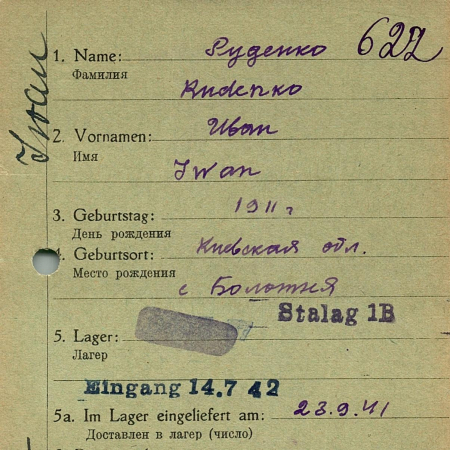 Iwan
1. Name: Руденко 622
Фамилия
Rudenko
2. Vornamen: Иван
Имя
Iwan
3. Geburtstag: 1911 г
День рождения
4. Geburtsort: Киевская обл.
Место рождения
с Болотня
Stalag 1B
5. Lager:
Лагерь
Eingang 14.7 42
5a. Im Lager eingeliefert am: 23.9.41
Доставлен в лагерь (число)